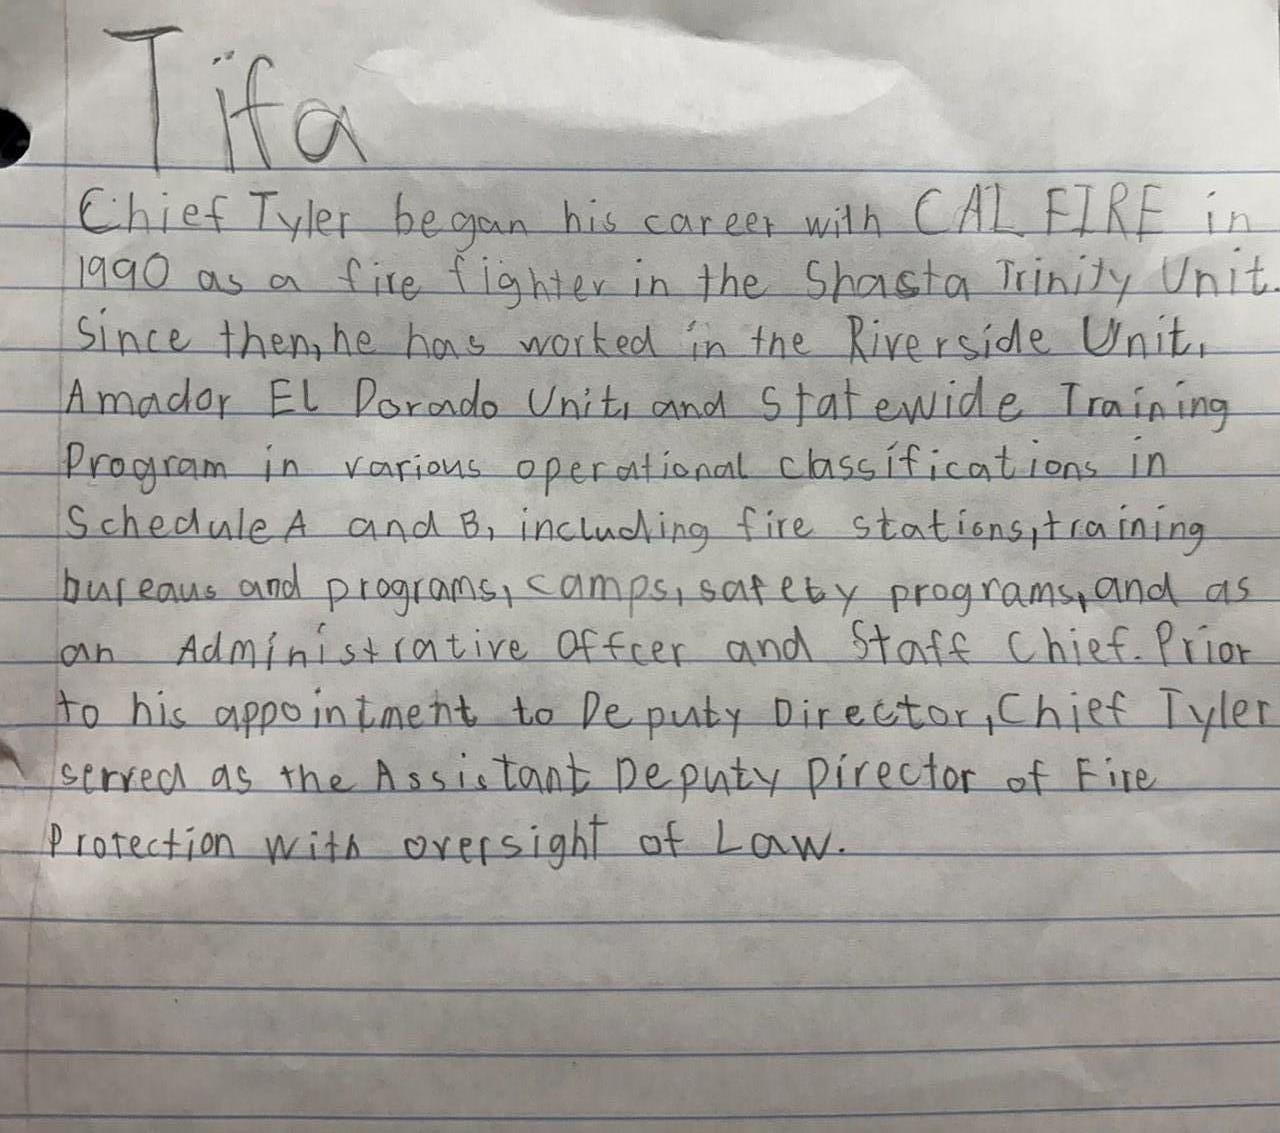 Tifa
Chief Tyler began his career with CAL FIRE in
1990 as a fire fighter in the Shasta Trinity Unit.
Since then, he has worked in the Riverside Unit,
Amador El Dorado Unit, and Statewide Training
Program in various operational classifications in
Schedule A and B, including fire stations, training
bureaus and programs, camps, safety programs, and as
an Administrative Offcer and Staff Chief. Prior
to his appointment to Deputy Director, Chief Tyler
served as the Assistant Deputy Director of Fire
Protection with oversight of Law.